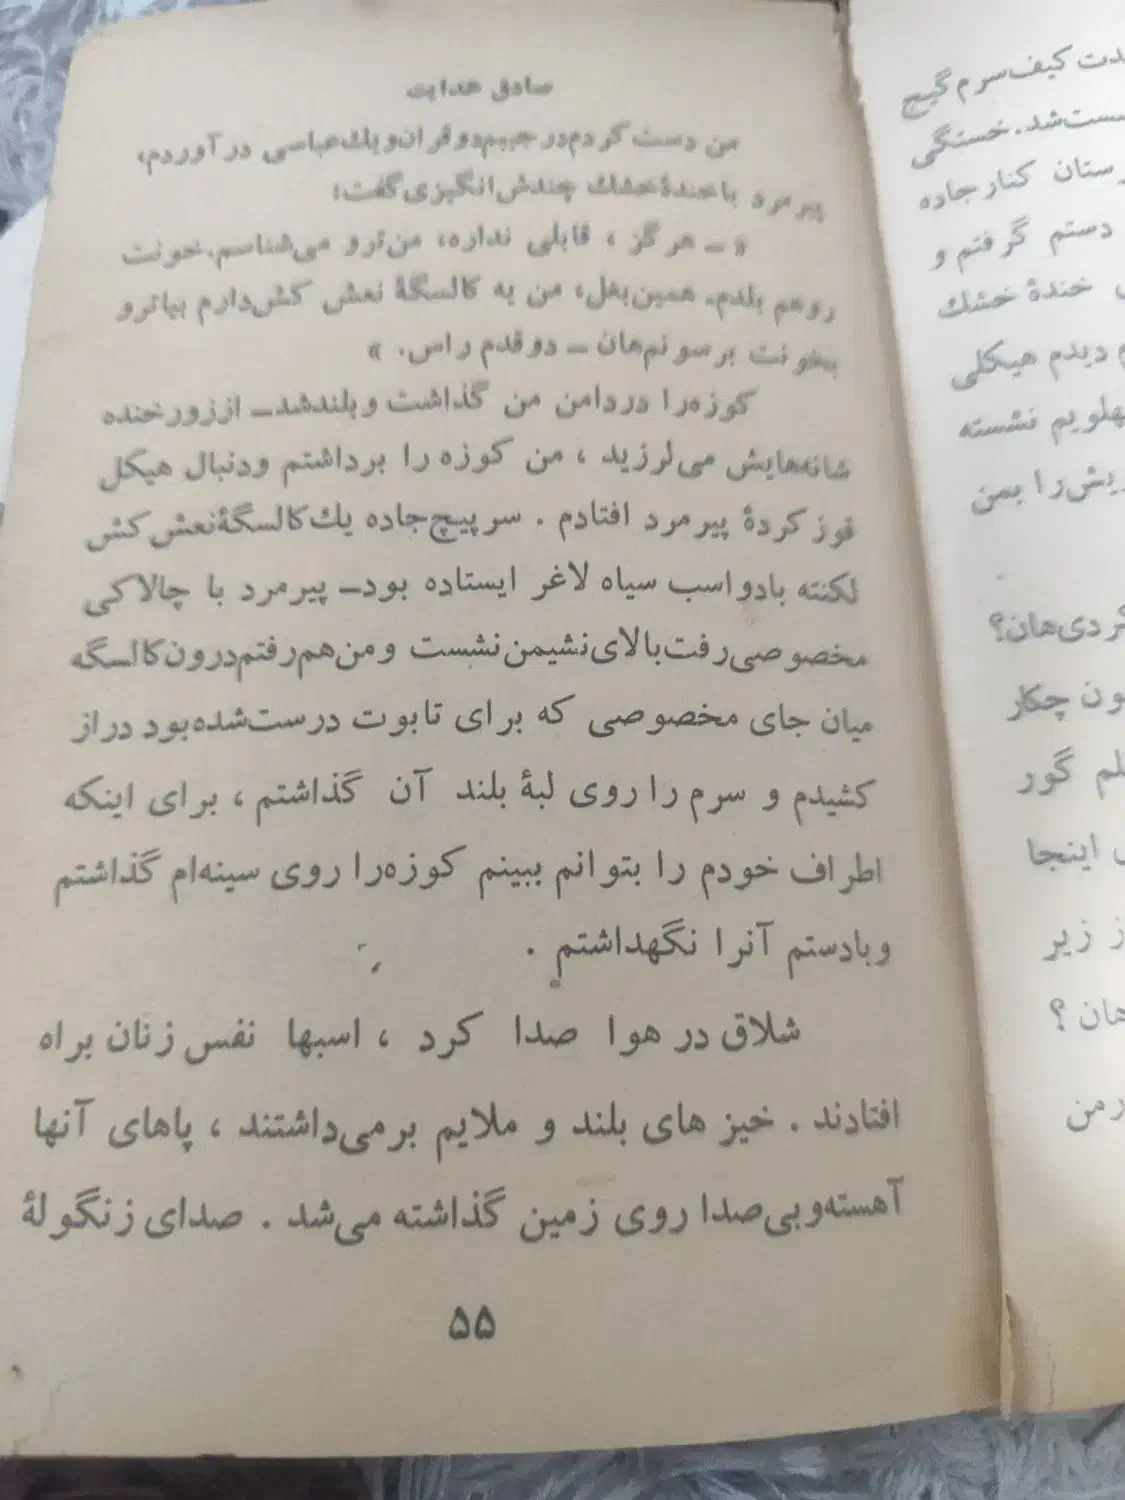 صادق هدایت
من دست کردم در جیبم دو قران و یك عباسی در آوردم،
پیر مرد با خندهٔ خشك چندش انگیزی گفت:
« ــ هر گز ، قابلی نداره، من ترو می‌شناسم. خونت
روهم بلدم. همین بغل، من یه کالسگهٔ نعش کش دارم بیا ترو
بخونت برسونم هان ــ دو قدم راس. »
کوزه را در دامن من گذاشت و بلند شد ــ از زور خنده
شانه‌هایش می‌لرزید ، من کوزه را برداشتم و دنبال هیکل
قوز کردهٔ پیر مرد افتادم . سر پیچ جاده یك کالسگهٔ نعش کش
لکنته با دو اسب سیاه لاغر ایستاده بود ــ پیر مرد با چالاکی
مخصوصی رفت بالای نشیمن نشست و من هم رفتم درون کالسگه
میان جای مخصوصی که برای تابوت درست شده بود دراز
کشیدم و سرم را روی لبهٔ بلند آن گذاشتم ، برای اینکه
اطراف خودم را بتوانم ببینم کوزه را روی سینه‌ام گذاشتم
و با دستم آنرا نگهداشتم .
شلاق در هوا صدا کرد ، اسبها نفس زنان براه
افتادند . خیز های بلند و ملایم بر می‌داشتند ، پاهای آنها
آهسته و بی‌صدا روی زمین گذاشته می‌شد . صدای زنگولهٔ
۵۵
کیف سرم گیج
شد. خستگی
کنار جاده
دستم گرفتم و
خندهٔ خشك
دیدم هیکلی
نشسته
را بمن
کردی هان؟
چکار
گور
اینجا
زیر
هان ؟